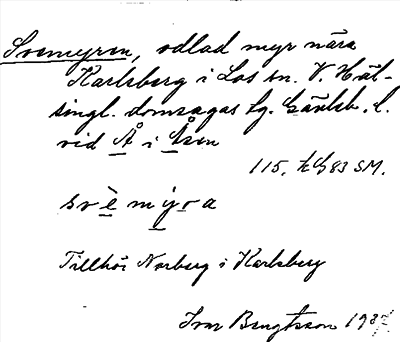 Svemyren, odlad myr nära
Karlsberg i Los sn. V. Häl-
singl. domsagas tg. Gävleb. l.
vid Å i Åsen
115. h G 83 SM.
s v è m ý r a
Tillhör Norberg i Karlsberg
Ivar Bengtsson 193